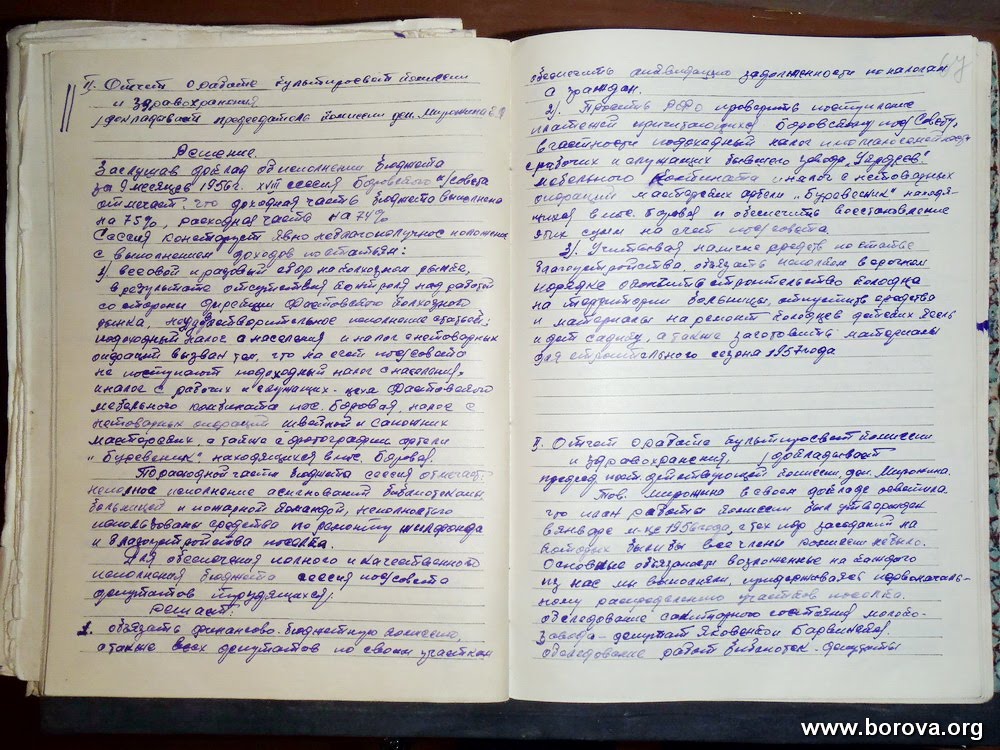 II. Отчет о работе культпросвет комиссии
и здравохранения
/докладывает председатель комиссии деп. Миронина
Решение.
Заслушав доклад об исполнении бюджета
за 9 месяцев 1956г. XVIII сессия Боровского п/совета
отмечает, что доходная часть бюджета выполнена
на 75%, расходная часть на 74%
Сессия констатирует явно неблагополучное положение
с выполнением доходов по статьям:
1) весовой и разовый сбор на колхозном рынке,
в результате отсутствия контроля над работой
со стороны дирекции Фастовского колхозного
рынка, неудовлетворительное исполнение статьей:
подоходный налог с населения и налог с нетоварных
операций вызван тем, что на счет пос/совета
не поступают подоходный налог с населения,
и налог с рабочих и служащих цеха Фастовского
мебельного комбината пос. Боровая, налог с
нетоварных операций швейной и сапожних
мастерских, а также с фотографии артели
"Буревесник" находящихся в пос. Боровая.
По расходной части бюджета сессия отмечает:
неполное исполнение асигнований библиотеками
больницей и пожарной командой, неполностью
использованы средства по ремонту жилфонда
и благоустройства поселка.
Для обеспечения полного и качественного
исполнения бюджета сессия пос/совета
депутатов трудящихся:
решает:
1. обязать финансово-бюджетную комиссию,
а также всех депутатов по своим участкам
обеспечить ликвидацию задолженности по налогам
с граждан.
2) Просить РФО проводить поступление
платежей причитающихся Боровскому пос/Совету,
в частности подоходный налог
с рабочих и служащих бывшего завода
мебельного комбината и налог с нетоварных
операций мастерских артели "Буревесник" находя-
щихся в пос. Боровая и обеспечить восстановление
этих сумм на счет пос/совета.
3) Учитывая наличие средств по статье
благоустройства, обязать исполком в срочном
порядке окончить строительство колодца
на территории больницы, отпустить средства
и материалы на ремонт колодцев детских яслей
и дет садику, а также заготовить материалы
для строительного сезона 1957 года
II. Отчет о работе культпросвет комиссии
и здравохранения, /докладывает
председ. пост. действующей комиссии деп. Миронина.
Тов. Миронина в своем докладе осветила,
что план работы комиссии был утвержден
в январе м-це 1956 года, с тех пор заседаний на
которых были бы все члены комиссии небыло.
Основные обязаности возложенные на каждого
из нас мы выполняли, придерживаясь первоначаль-
ному распределению участков поселка.
обследование санитарного состояния молоко-
завода - депутат Яковенко и Барвинета,
обследование работ библиотек - депутаты
www.borova.org